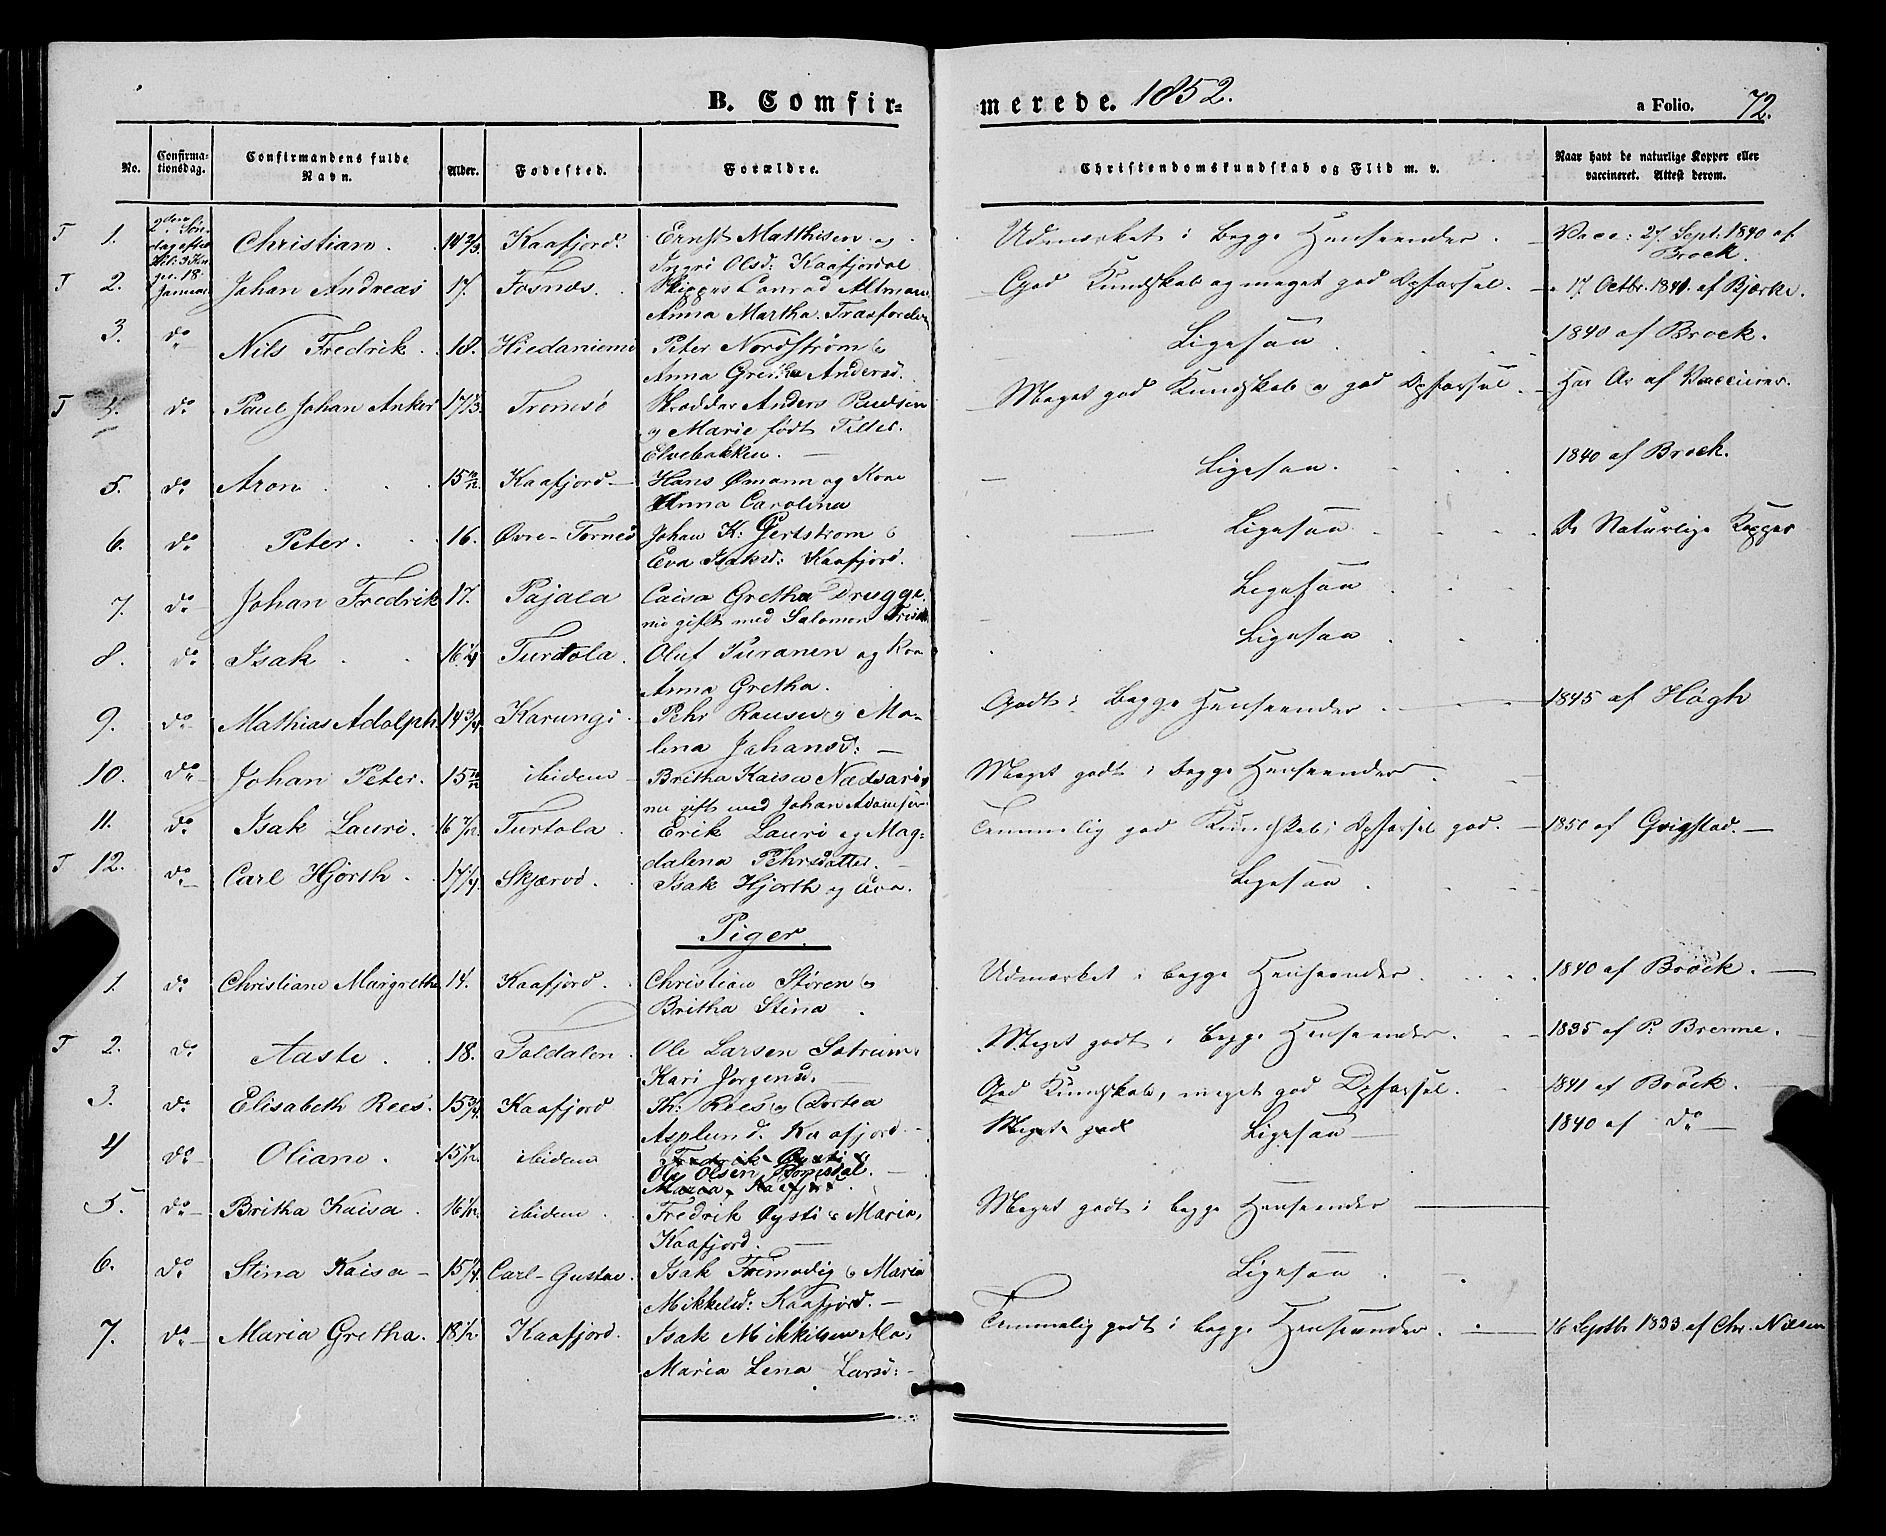 B. Comfir=merede. 1852. a Folio. 72.
No. Confirma-tionsdag. Confirmandens fulde Navn. Alder. Fødested. Forældre. Christendomskundskab og Flid m. v. Naar havt de naturlige Kopper eller vaccineret. Attest derom.
T 1. 2den Søndag efter Hel: 3 Konger. 18 Januar Christian. 14 2/3 Kaafjord. Ernst Matthisen og Olsd: Kaafjordal Udmærket i Begge Henseender. Vacc: 27. Sept: 1840 af Brock.
T 2. Johan Andreas 17. Fosnæs. Skipper Conrad Altman Anna Martha. God Kundskab og meget god Opførsel. 17 Octbr. 1841. af Bjerke.
3. do Nils Fredrik. 18. Hiedaniemi Peter Nordstrøm & Anna Gretha Andersd. Ligesaa 1840 af Brock.
T 4. do Paul Johan Anker 17 1/3 Tromsø Skrædder Anders Rudsen og Marie født Tiller. Elvebakken. Meget god Kundskab og god Opførsel. Har Ar af Vacciner.
5. do Aron 15 Kaafjord Hans Ømann og Kone Anna Carolina Ligesaa. 1840 af Brock.
6. do Peter. 16. Øvre-Torneå Johan K: Gertstrøm & Eva Isaksd: Kaafjord. Ligesaa De Naturlige Kopper
7. do Johan Fredrik 17. Pajala Caisa Gretha Drugge. nu gift med Salomon Ligesaa
8. do Isak 16 1/4 Turtola. Oluf Puranen og Kone Anna Gretha. Ligesaa
9. do Mathias Adolph. 14 3/4 Karungi. Pehr Rousu og Malena Johansd: Godt i Begge Henseender 1845 af Høgh
10. do Johan Peter. 15 10/12 ibidem Britha Kaisa nu gift med Johan Adamsen. Meget godt i begge Henseender.
11. do Isak Lauri. 16 7/12. Turtola. Erik Lauri og Magdalena Pehrsdatter. Temmelig god Kundskab; Opførsel god. 1850 af Grigstad.
T 12. do Carl Hjorth. 17 1/4 Skjærvø. Isak Hjorth og Eva. Ligesaa
Piger.
1. do Christiane Margrethe 14. Kaafjord. Christian Støren & Britha Stina Udmærket i begge Henseender. 1840 af Brock.
T 2. do Aaste. 18. Toldalen. Ole Larsen Kari Jørgensd. Meget godt i begge Henseender. 1835 af P: Brenne.
3. do Elisabeth Rees. 15 3/4. Kaafjord Th: Rees og Dortea Asplund. Kaafjord. God Kundskab, meget god Opførsel. 1841 af Brock.
4 do Oliane. 15 1/2. ibidem Fredrik Øysti & Ole Olsen Maria, Kaafjord Meget godt Ligesaa 1840 af do
5. do Britha Kaisa. 16 1/2. ibidem. Fredrik Øysti & Maria, Kaafjord. Meget godt i begge Henseender
6. do Stina Kaisa 15 1/4. Carl-Gustav. Isak Fremodig & Maria Mikkelsd: Kaafjord. Ligesaa
7. do Maria Gretha. 18 1/2. Kaafjord. Isak Mikkilsen Ma, Maria Lena Larsd: Temmelig godt i begge Henseender. 16 Septbr 1833 af Chr. Nilsen